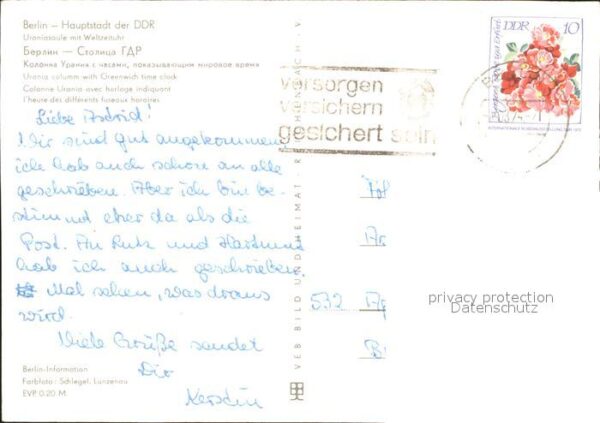 Berlin — Hauptstadt der DDR
Uraniasäule mit Weltzeituhr
Берлин — Столица ГДР
Колонна Урания с часами, показывающими мировое время
Urania column with Greenwich time clock
Colonne Urania avec horloge indiquant
l'heure des différents fuseaux horaires
Liebe Astrid!
Wir sind gut angekommen
ich hab auch schon an alle
geschrieben. Aber ich bin be-
stimmt eher da als die
Post. An Ruth und Hartmut
hab ich auch geschrieben.
Mal sehen, was draus
wird.
Viele Grüße sendet
Dir
Kerstin
Berlin-Information
Farbfoto: Schlegel, Lunzenau
EVP 0.20 M
VEB BILD UND HEIMAT
versorgen
versichern
gesichert sein
DDR 10
532 Ap
privacy protection
Datenschutz